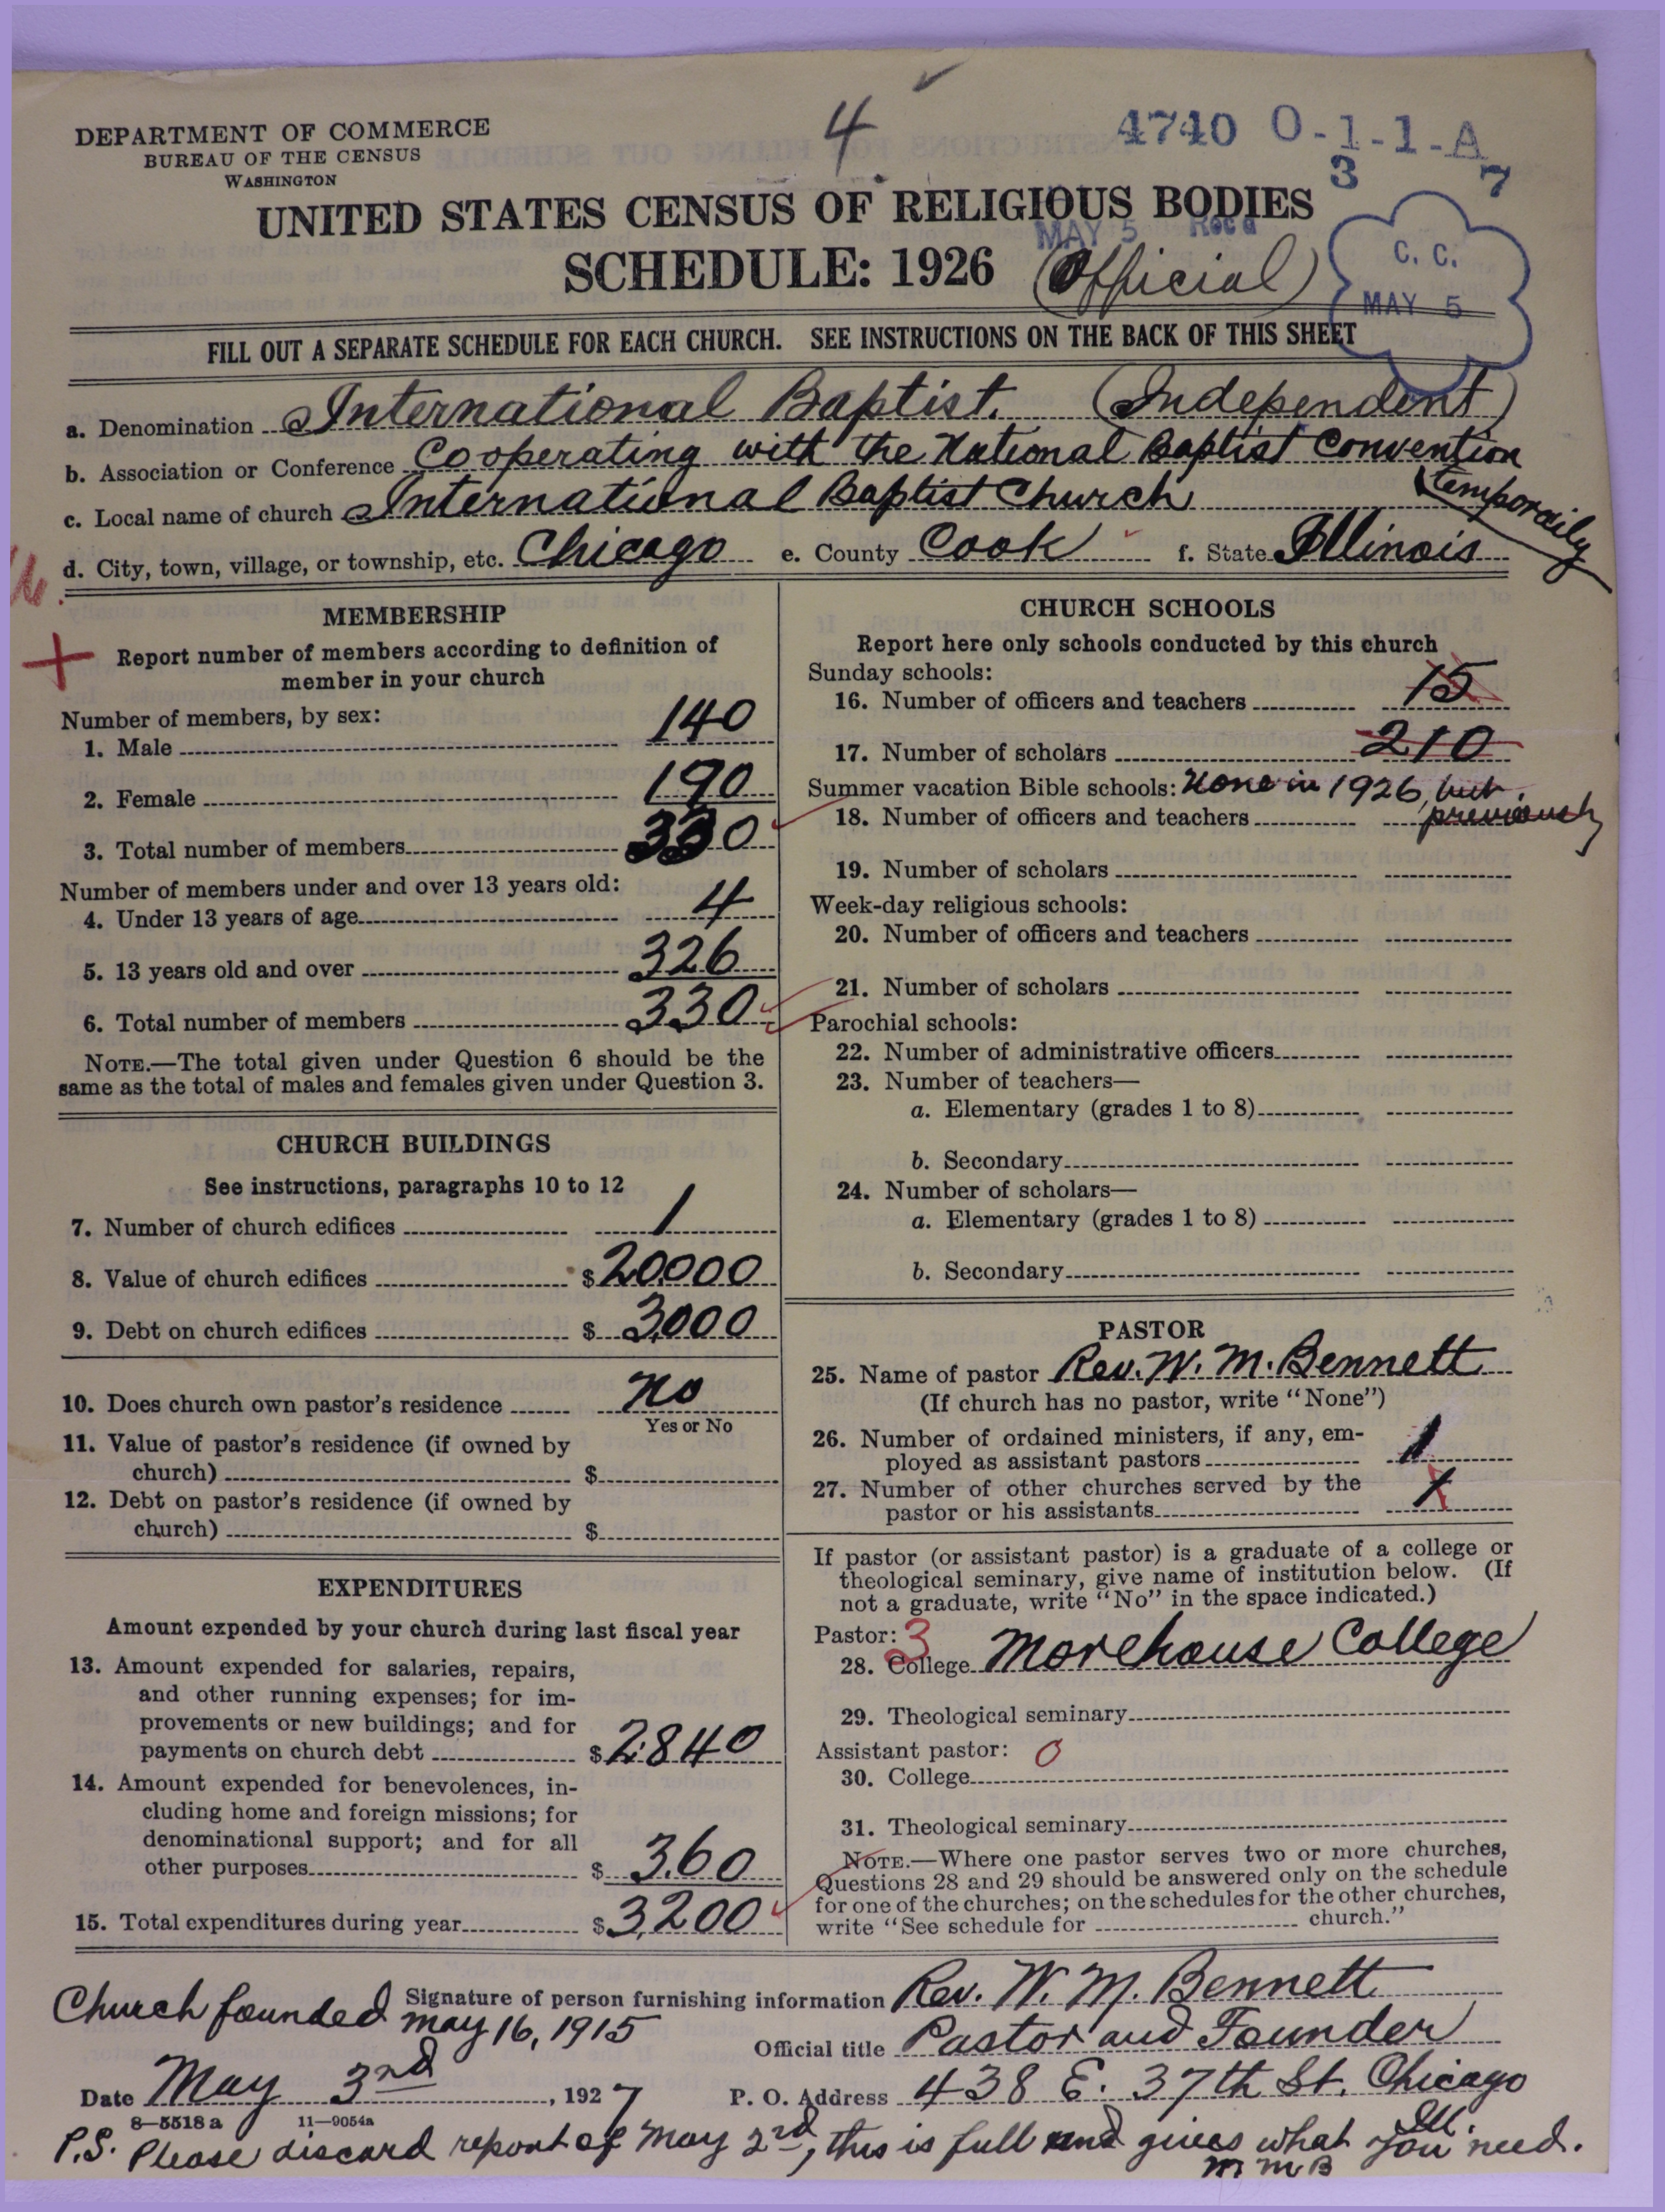 4
4740 O-1-1-A
3 7
DEPARTMENT OF COMMERCE
BUREAU OF THE CENSUS
WASHINGTON
UNITED STATES CENSUS OF RELIGIOUS BODIES
MAY 5 Rec'd
SCHEDULE: 1926 (Official)
C. C.
MAY 5
FILL OUT A SEPARATE SCHEDULE FOR EACH CHURCH. SEE INSTRUCTIONS ON THE BACK OF THIS SHEET
a. Denomination International Baptist. (Independent)
b. Association or Conference Cooperating with the National Baptist Convention
temporaily
c. Local name of church International Baptist Church
d. City, town, village, or township, etc. Chicago e. County Cook f. State Illinois
MEMBERSHIP
Report number of members according to definition of
member in your church
Number of members, by sex:
1. Male 140
2. Female 190
3. Total number of members 330
Number of members under and over 13 years old:
4. Under 13 years of age 4
5. 13 years old and over 326
6. Total number of members 330
NOTE.—The total given under Question 6 should be the
same as the total of males and females given under Question 3.
CHURCH BUILDINGS
See instructions, paragraphs 10 to 12
7. Number of church edifices 1
8. Value of church edifices $20000
9. Debt on church edifices $3000
10. Does church own pastor's residence No
Yes or No
11. Value of pastor's residence (if owned by
church) $
12. Debt on pastor's residence (if owned by
church) $
EXPENDITURES
Amount expended by your church during last fiscal year
13. Amount expended for salaries, repairs,
and other running expenses; for im-
provements or new buildings; and for
payments on church debt $2840
14. Amount expended for benevolences, in-
cluding home and foreign missions; for
denominational support; and for all
other purposes $360
15. Total expenditures during year $3,200
CHURCH SCHOOLS
Report here only schools conducted by this church
Sunday schools:
16. Number of officers and teachers 15
17. Number of scholars 210
Summer vacation Bible schools: None in 1926, but
18. Number of officers and teachers previously
19. Number of scholars
Week-day religious schools:
20. Number of officers and teachers
21. Number of scholars
Parochial schools:
22. Number of administrative officers
23. Number of teachers—
a. Elementary (grades 1 to 8)
b. Secondary
24. Number of scholars—
a. Elementary (grades 1 to 8)
b. Secondary
PASTOR
25. Name of pastor Rev. W. M. Bennett
(If church has no pastor, write "None")
26. Number of ordained ministers, if any, em-
ployed as assistant pastors 1
27. Number of other churches served by the
pastor or his assistants 1
If pastor (or assistant pastor) is a graduate of a college or
theological seminary, give name of institution below. (If
not a graduate, write "No" in the space indicated.)
Pastor: 3
28. College Morehouse College
29. Theological seminary
Assistant pastor: 0
30. College
31. Theological seminary
NOTE.—Where one pastor serves two or more churches,
Questions 28 and 29 should be answered only on the schedule
for one of the churches; on the schedules for the other churches,
write "See schedule for church."
Church founded may 16, 1915
Signature of person furnishing information Rev. W. M. Bennett
Official title Pastor and Founder
Date May 3rd, 1927 P. O. Address 438 E. 37th St. Chicago
Ill.
8—5518a 11—9054a
P.S. Please discard report of May 2nd, this is full and gives what you need.